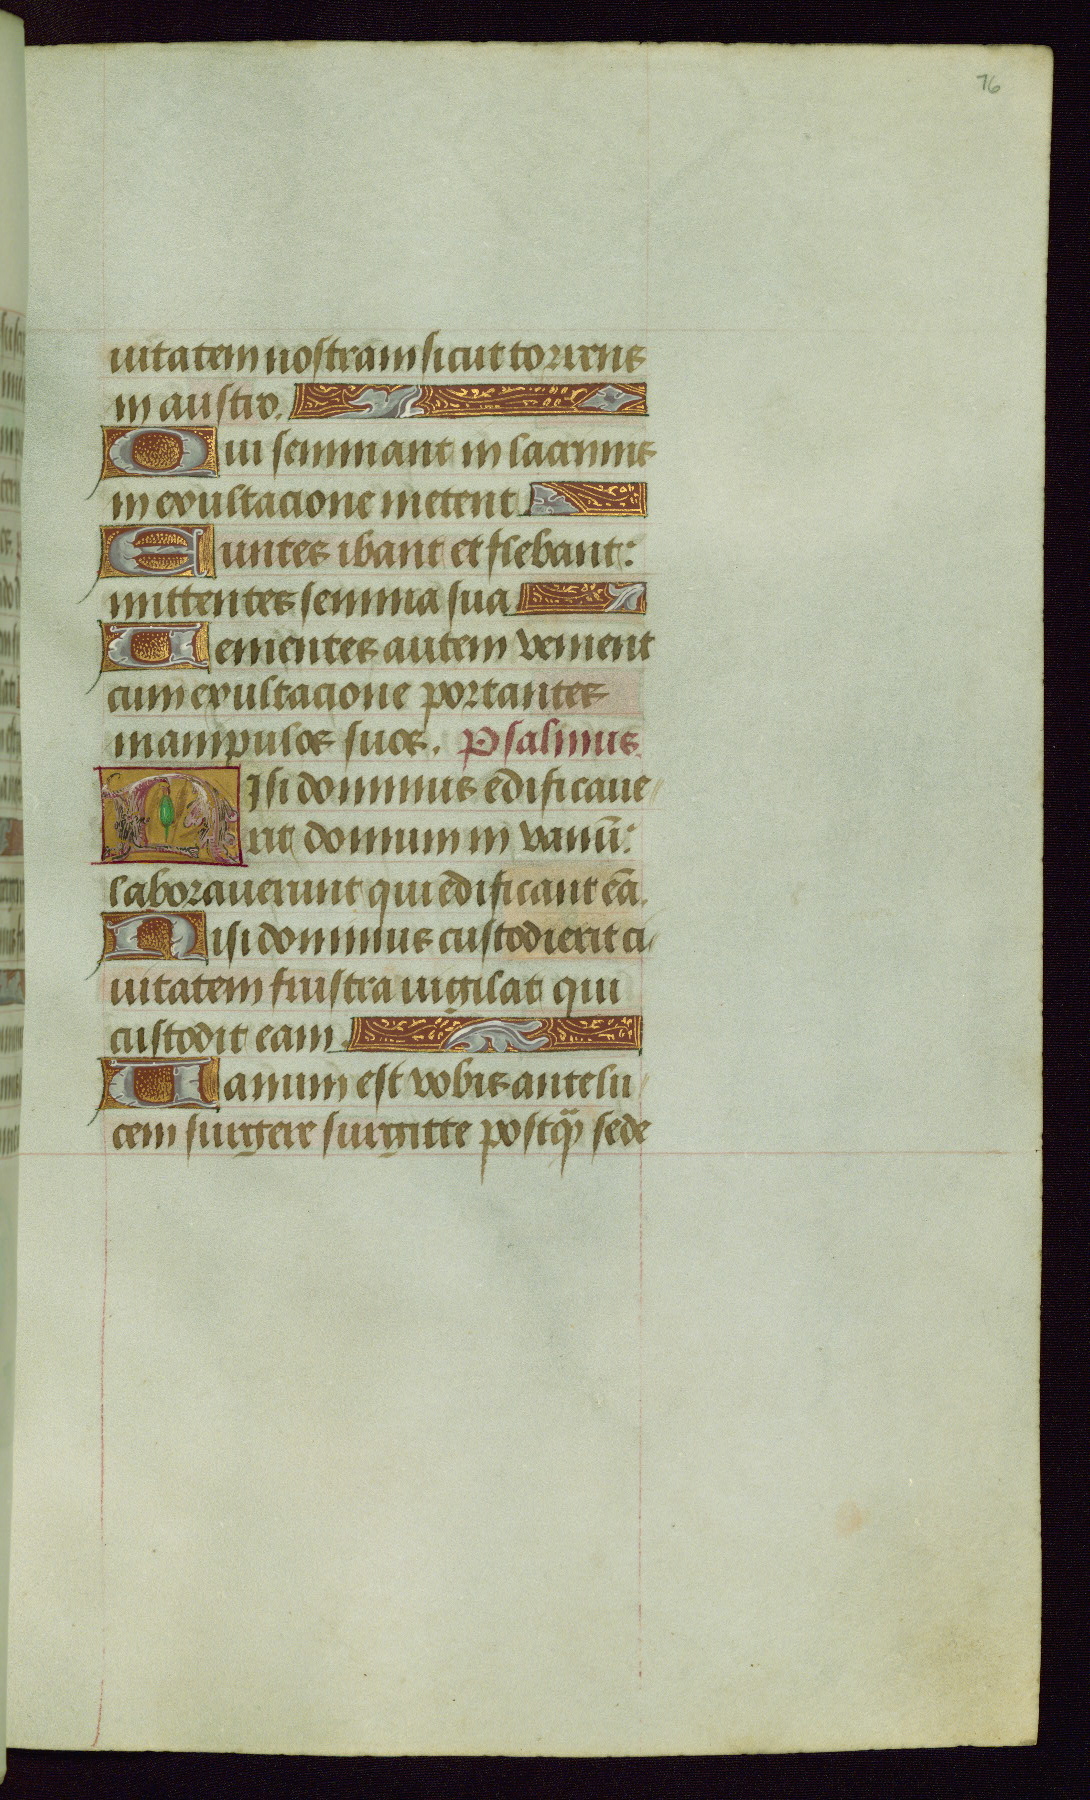 76
uitatem nostram sicut torrens
in austro.
Qui seminant in lacrimis
in exultacione metent
Euntes ibant et flebant:
mittentes semina sua
Uenientes autem venient
cum exultacione portantes
manipulos suos. Psalmus
NIsi dominus edificaue
rit domum in vanū:
laborauerunt qui edificant eā.
Nisi dominus custodierit ci
uitatem frustra uigilat qui
custodit eam.
Uanum est vobis ante lu
cem surgere surgitte postq̄ sede